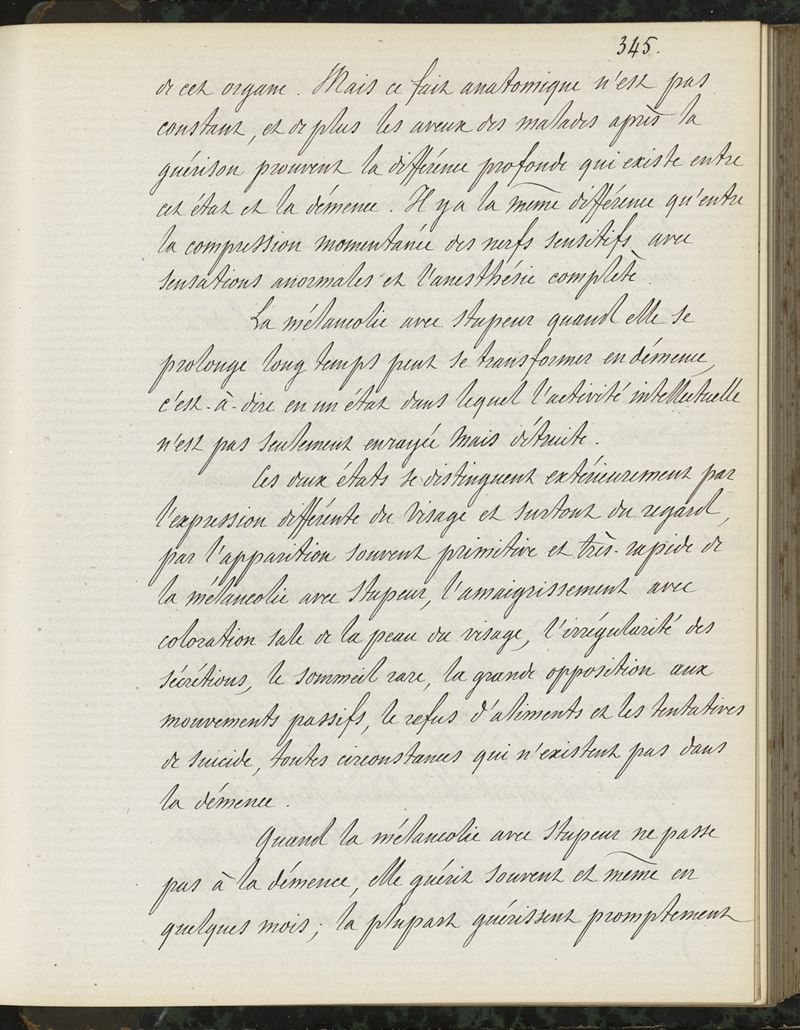 345.
de cet organe. Mais ce fait anatomique n'est pas
constant, et de plus les aveux des malades après la
guérison prouvent la différence profonde qui existe entre
cet état et la démence. Il y a la même différence qu'entre
la compression momentanée des nerfs sensitifs avec
sensations anormales et l'anesthésie complète.
La mélancolie avec stupeur quand elle se
prolonge long temps peut se transformer en démence,
c'est-à-dire en un état dans lequel l'activité intellectuelle
n'est pas seulement enrayée mais détruite.
Ces deux états se distinguent extérieurement par
l'expression différente du visage et surtout du regard,
par l'apparition souvent primitive et très-rapide de
la mélancolie avec stupeur, l'amaigrissement avec
coloration sale de la peau du visage, l'irrégularité des
sécrétions, le sommeil rare, la grande opposition aux
mouvements passifs, le refus d'aliments et les tentatives
de suicide, toutes circonstances qui n'existent pas dans
la démence.
Quand la mélancolie avec stupeur ne passe
pas à la démence, elle guérit souvent et même en
quelques mois; la plupart guérissent promptement